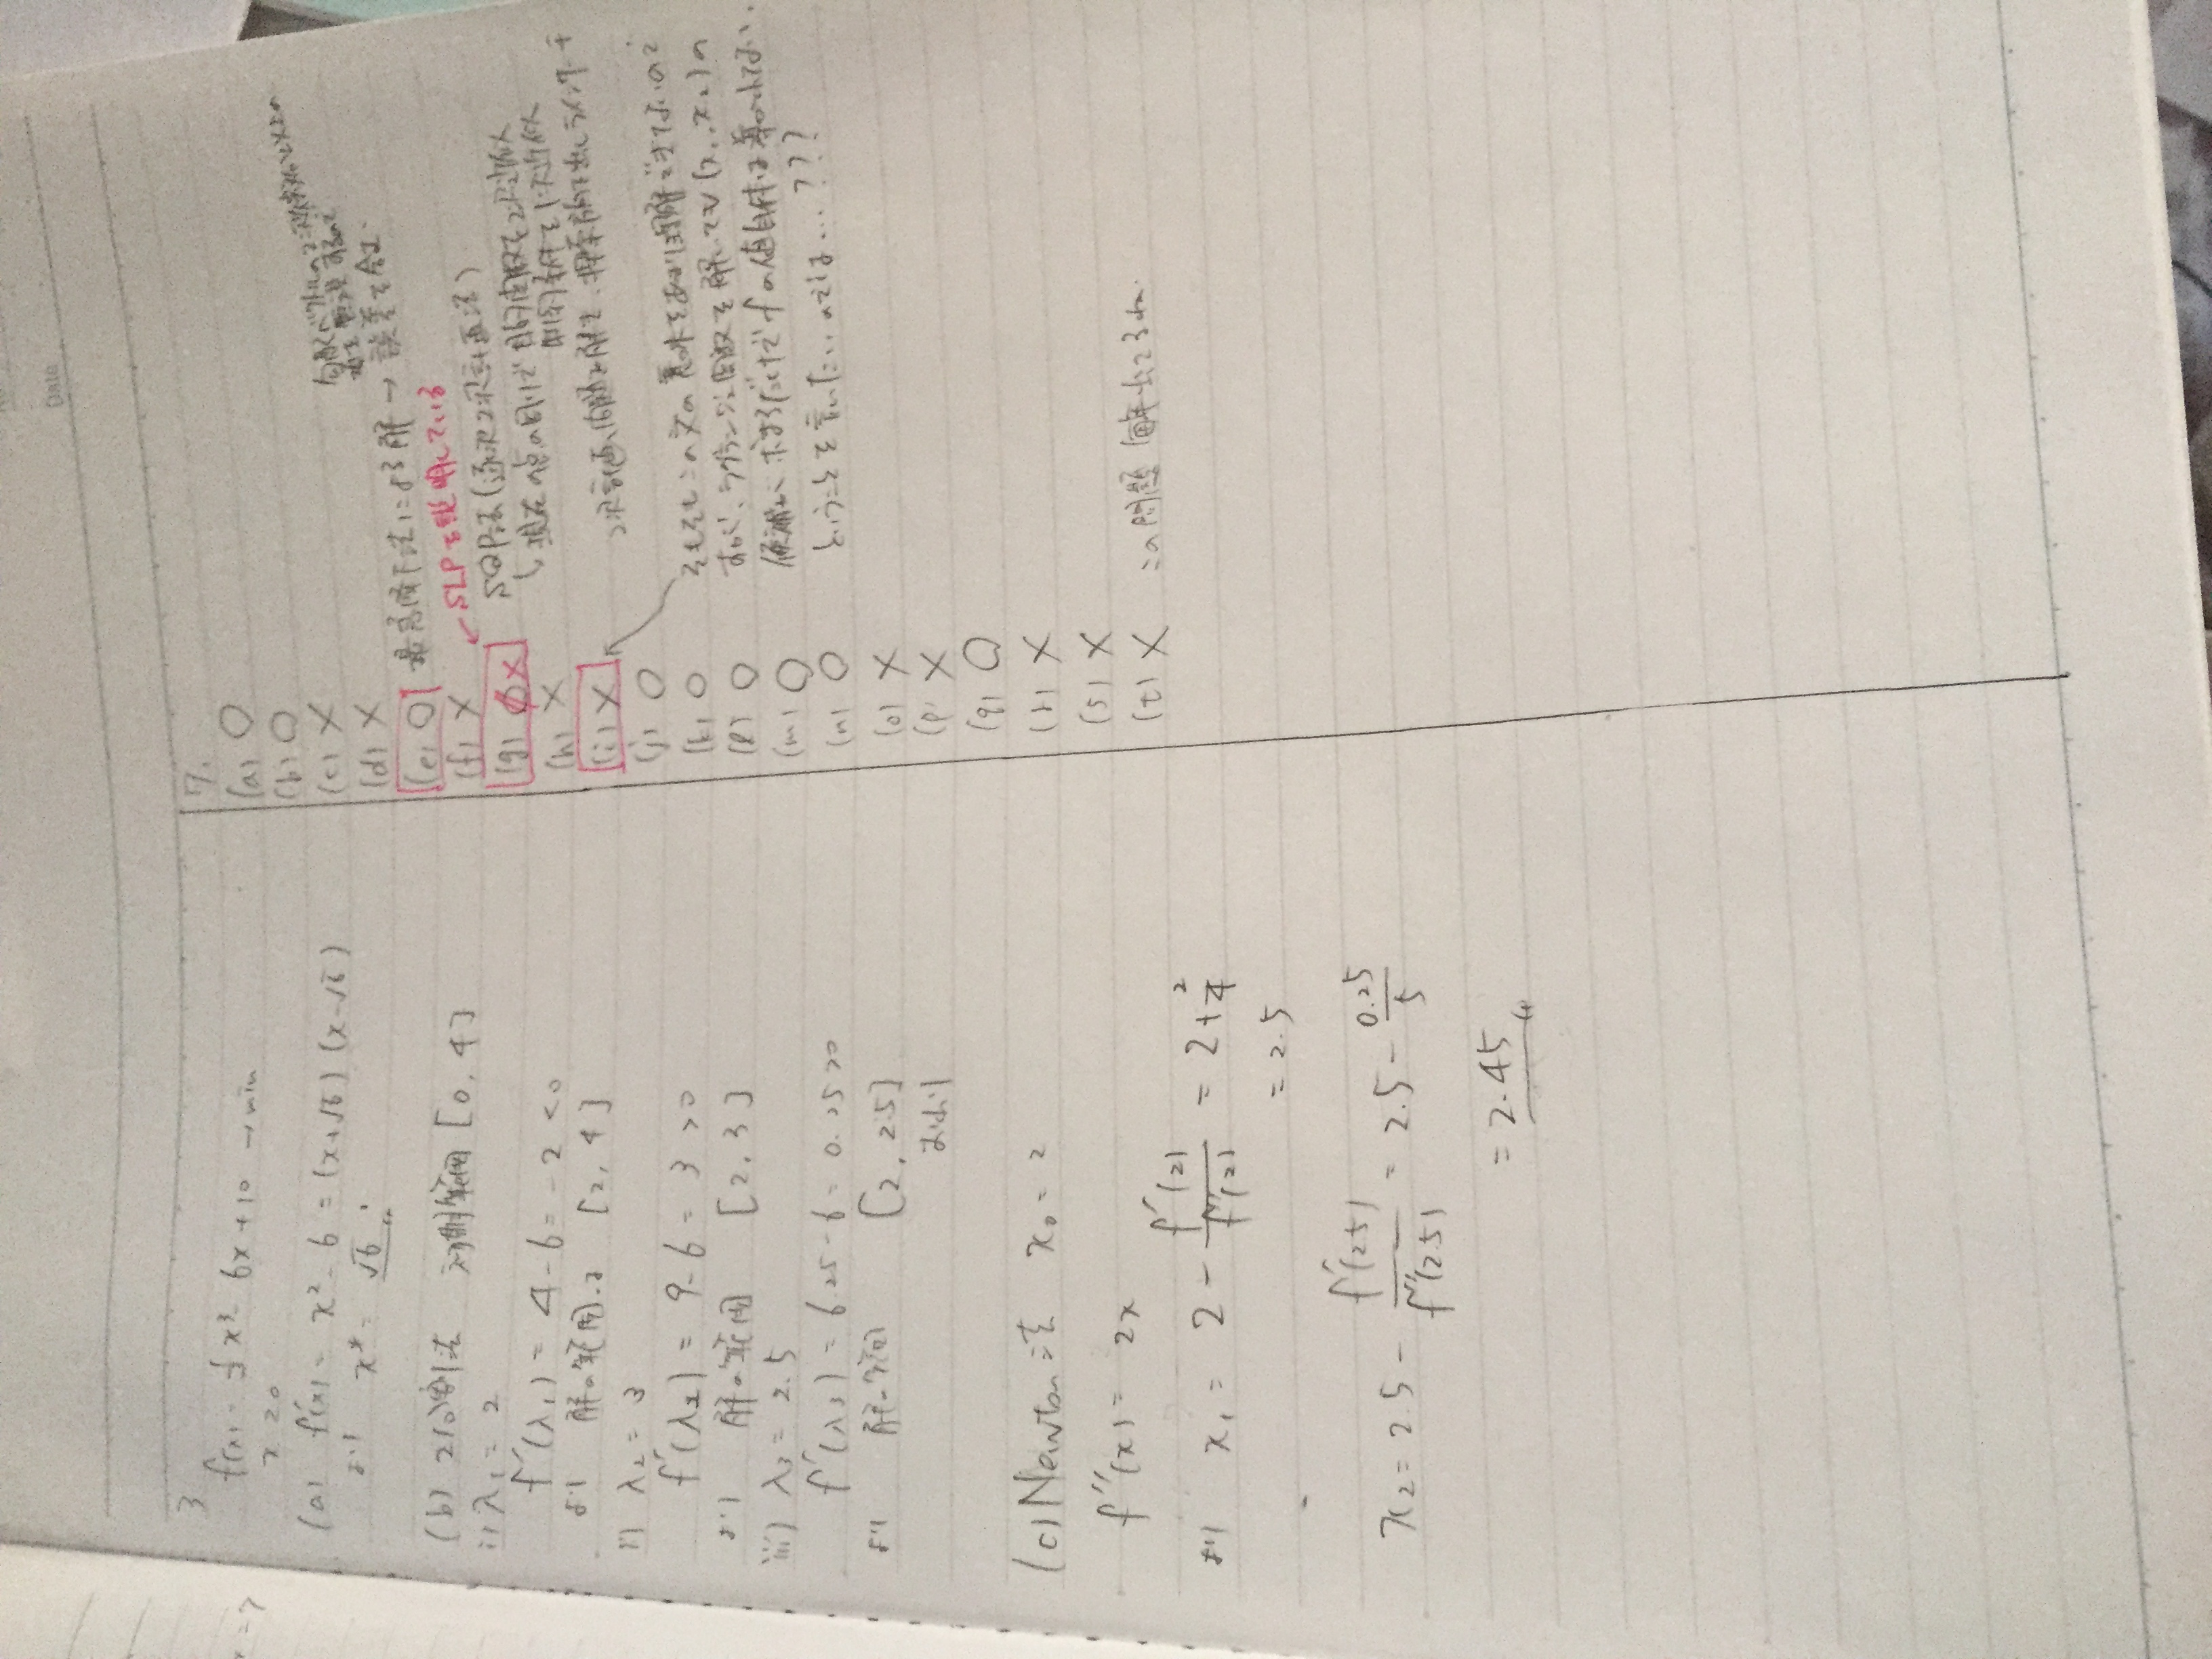 Date
3
f(x) = 1/3 x³ - 6x + 10 → min
x ≥ 0
(a) f'(x) = x² - 6 = (x+√6)(x-√6)
より x* = √6
(b) 2分割法 初期範囲 [0, 4]
i) λ₁ = 2
f'(λ₁) = 4 - 6 = -2 < 0
より 解の範囲は [2, 4]
ii) λ₂ = 3
f'(λ₂) = 9 - 6 = 3 > 0
より 解の範囲 [2, 3]
iii) λ₃ = 2.5
f'(λ₃) = 6.25 - 6 = 0.25 > 0
より 解の範囲 [2, 2.5]
おわり
(c) Newton法 x₀ = 2
f''(x) = 2x
より x₁ = 2 - f'(2)/f''(2) = 2 + 2/4
= 2.5
x₂ = 2.5 - f'(2.5)/f''(2.5) = 2.5 - 0.25/5
= 2.45
7.
(a) ○
(b) ○
(c) ×
(d) ×
勾配ベクトルの2次以上の
するので
(e) ○ 最急降下法による解 → 誤差を含む.
(f) × ← SLPを説明している
(g) × SQP法(逐次2次計画法)
↳ 現在の点の周りで目的関数を2次近似
制約条件を1次近似
(h) ×
2次計画問題を解き、探索方向を出しラインサーチ
(i) ×
(j) ○
そもそもこの文の意味をあまり理解できてないので
(k) ○
すが、ラグランジュ関数を解いても(x₁, x₂)の
(l) ○
候補が求まるだけでfの値自体は導かれてない.
(m) ○
ということを言いたいのでは…???
(n) ○
(o) ×
(p) ×
(q) ○
(r) ×
(s) ×
(t) × この問題